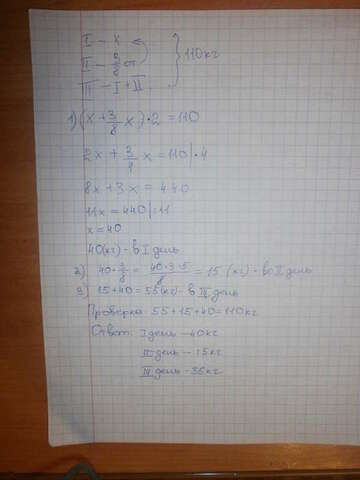 I - x
II - 3/8 от
III - I + II
110 кг
1) (x + 3/8 x) · 2 = 110
2x + 3/4 x = 110 | · 4
8x + 3x = 440
11x = 440 | : 11
x = 40
40(кг) - в I день
2) 40 · 3/8 = 40·3·5/8 = 15 (кг) - во II день
3) 15 + 40 = 55(кг) - в III день
Проверка: 55 + 15 + 40 = 110кг
Ответ: I день - 40кг
II день - 15кг
III день - 55кг